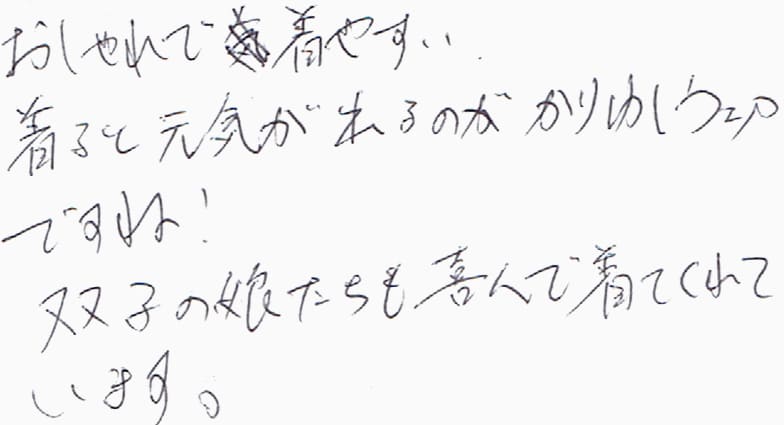 おしゃれで着やすい.
着ると元気が出るのが かりゆしウェア
ですね!
双子の娘たちも喜んで着てくれて
います。